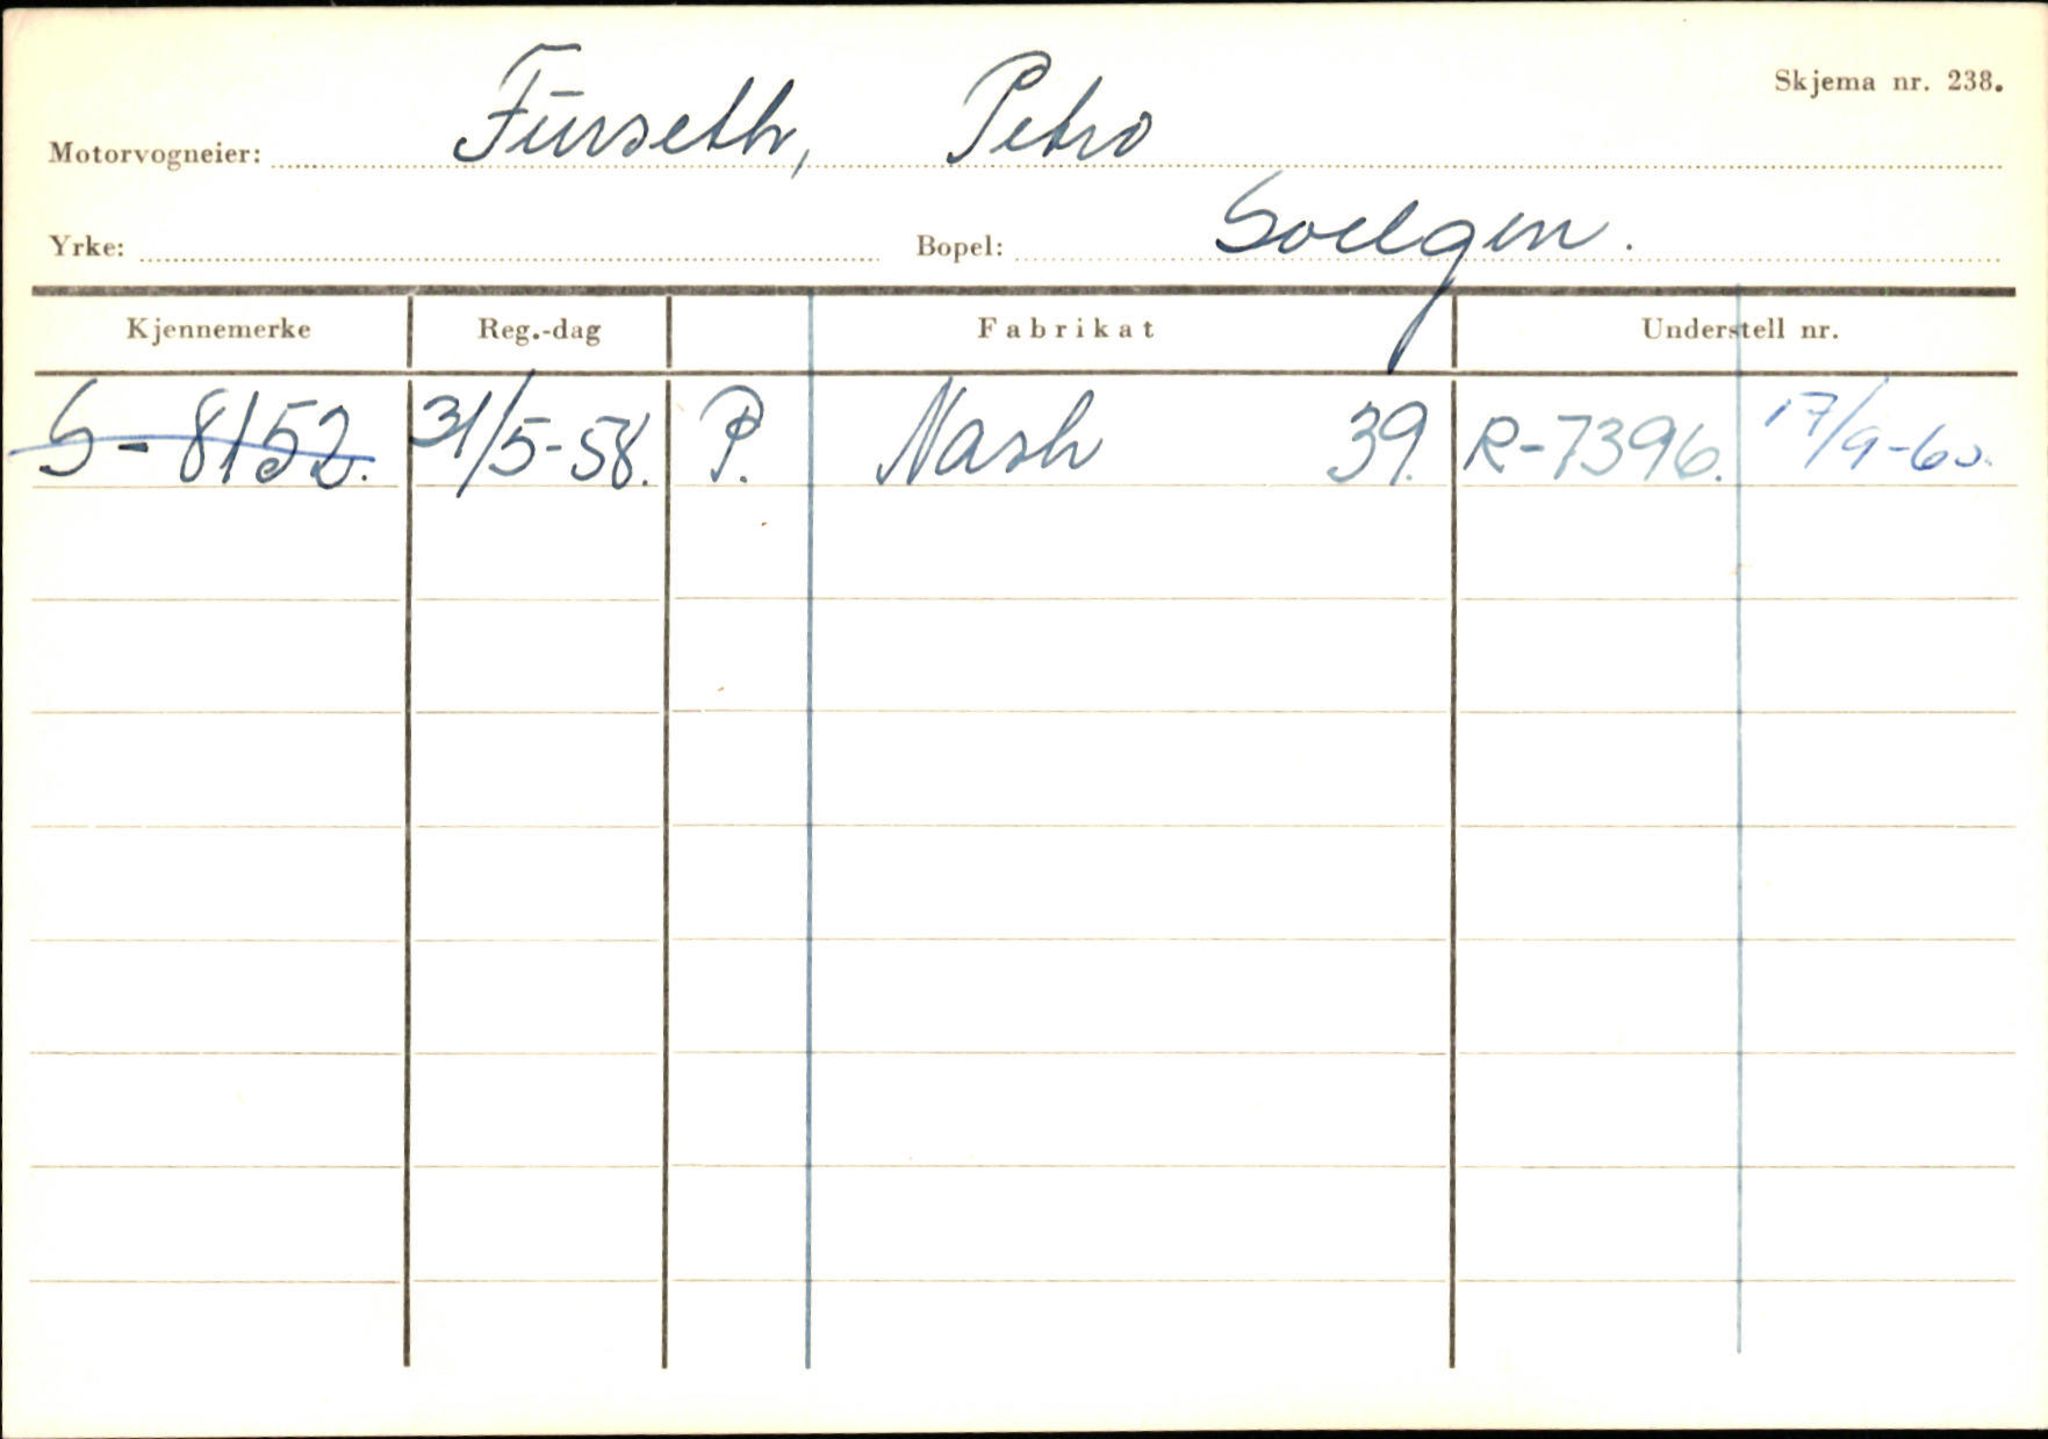 Skjema nr. 238.
Motorvogneier: Furseth, Petro
Yrke: Bopel: Solvorn.
Kjennemerke Reg.-dag Fabrikat Understell nr.
S-8152. 31/5-58. P. Nash 39. R-7396. 17/9-60.